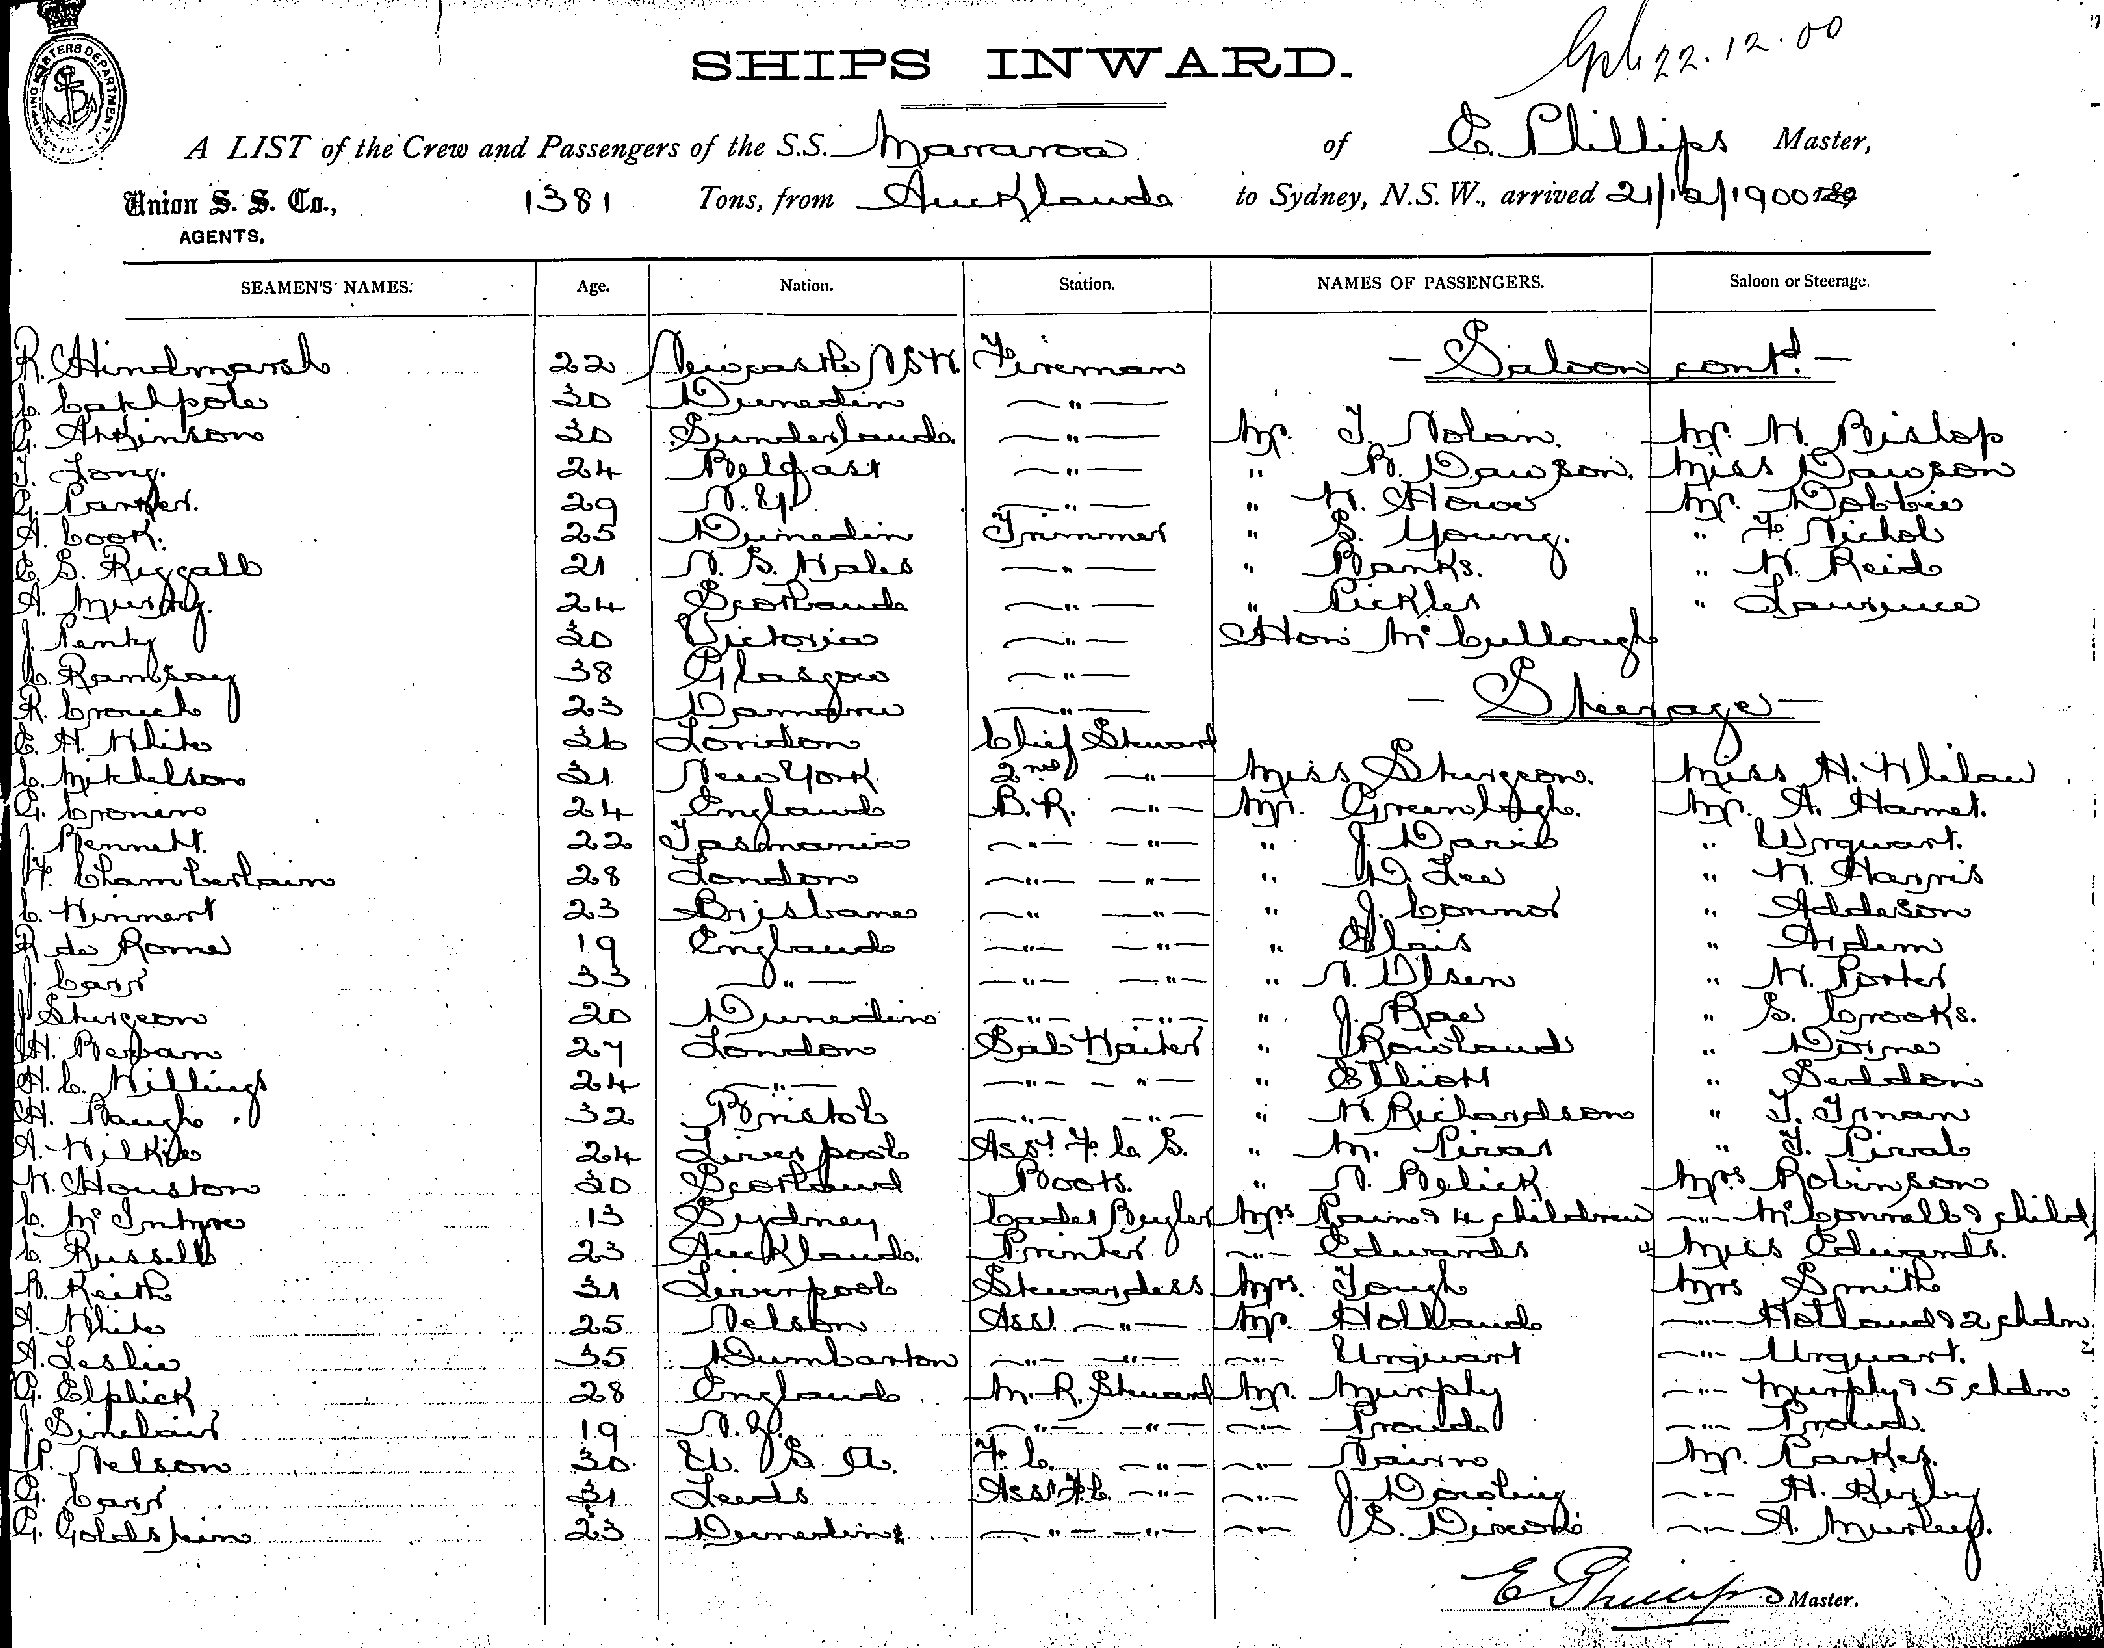 SHIPS INWARD.
22.12.00
A LIST of the Crew and Passengers of the S.S. Mararoa of E. Phillips Master,
Union S. S. Co., 1381 Tons, from Auckland to Sydney, N.S.W., arrived 21/12/1900 189
AGENTS.
SEAMEN'S NAMES. Age. Nation. Station. NAMES OF PASSENGERS. Saloon or Steerage.
R. Hindmarsh 22 Newcastle NSW Fireman — Saloon contd. —
C. Catchpole 30 Dunedin —"—
G. Atkinson 30 Sunderland —"— Mr. T. Nolan. Mr. W. Bishop
T. Long. 24 Belfast —"— " B. Dawson. Miss Dawson
G. Parker. 29 N.Z. —"— " W. Howe Mr. Dobbie
A. Cook. 25 Dunedin Trimmer " S. Young. " F. Nichol
E. S. Riggall 21 N. S. Wales —"— " Banks. " W. Reid
A. Murray. 24 Scotland —"— " Pickles " Laurence
J. 30 Victoria —"— Hon McCullough
C. Ramsay 38 Glasgow —"—
R. Crouch 23 Oamaru —"— — Steerage —
E. H. White 36 London Chief Steward
C. Mitchelson 31 New York 2nd —"— Miss Sturgeon. Miss H. Whilaw
G. Cronin 24 England B.R. —"— Mr. Greenhalgh. Mr. A. Hamet.
J. Bennett. 22 Tasmania —"— —"— " J. David " Urquart.
F. Chamberlain 28 London —"— —"— " D. Lee " W. Harris
C. Winnert 23 Brisbane —"— —"— " J. Connor " Addeson
R. de Rome 19 England —"— —"— " "
J. Carr 33 —"— —"— —"— " N. Olsen " W. Porter
J. Sturgeon 20 Dunedin —"— —"— " J. Rae " S. Crooks.
H. Beban 27 London Sal Waiter " Rowland " Dorne
H. C. Willings 24 —"— —"— —"— " Elliott " Seddon
H. Baugh 32 Bristol —"— —"— " W. Richardson " T.
A. Wilkie 24 Liverpool Asst F. C. S. " M. "
W. Houston 30 Scotland Boots. " N. Belick Mrs Robinson
C. McIntyre 13 Sydney Cadet Bugler Mrs Paine & 4 children —"— McConnall & child
C. Russell 23 Auckland. Printer —"— Edwards Miss Edwards.
B. Keith 31 Liverpool Stewardess Mrs. Tough Mrs Smith
A. White 25 Nelson Asst —"— Mr. Holland —"— Holland & 2 chdn
A. Leslie 35 Dumbarton —"— —"— —"— Urquart —"— Urquart.
G. Elphick 28 England M. R. Steward Mr. Murphy —"— Murphy & 5 chdn
J. Sinclair 19 N.Z. —"— —"— —"— Proud —"— Proud.
P. Nelson 30 U. S. A. F. C. —"— —"— Nairn Mr. Parker.
G. Carr 31 Leeds Asst F.C. —"— —"— J. Darling —"— H. Kirby
G. Goldstein 23 Dunedin —"— —"— —"— S. Dixon —"— A. Murley.
E Phillips Master.